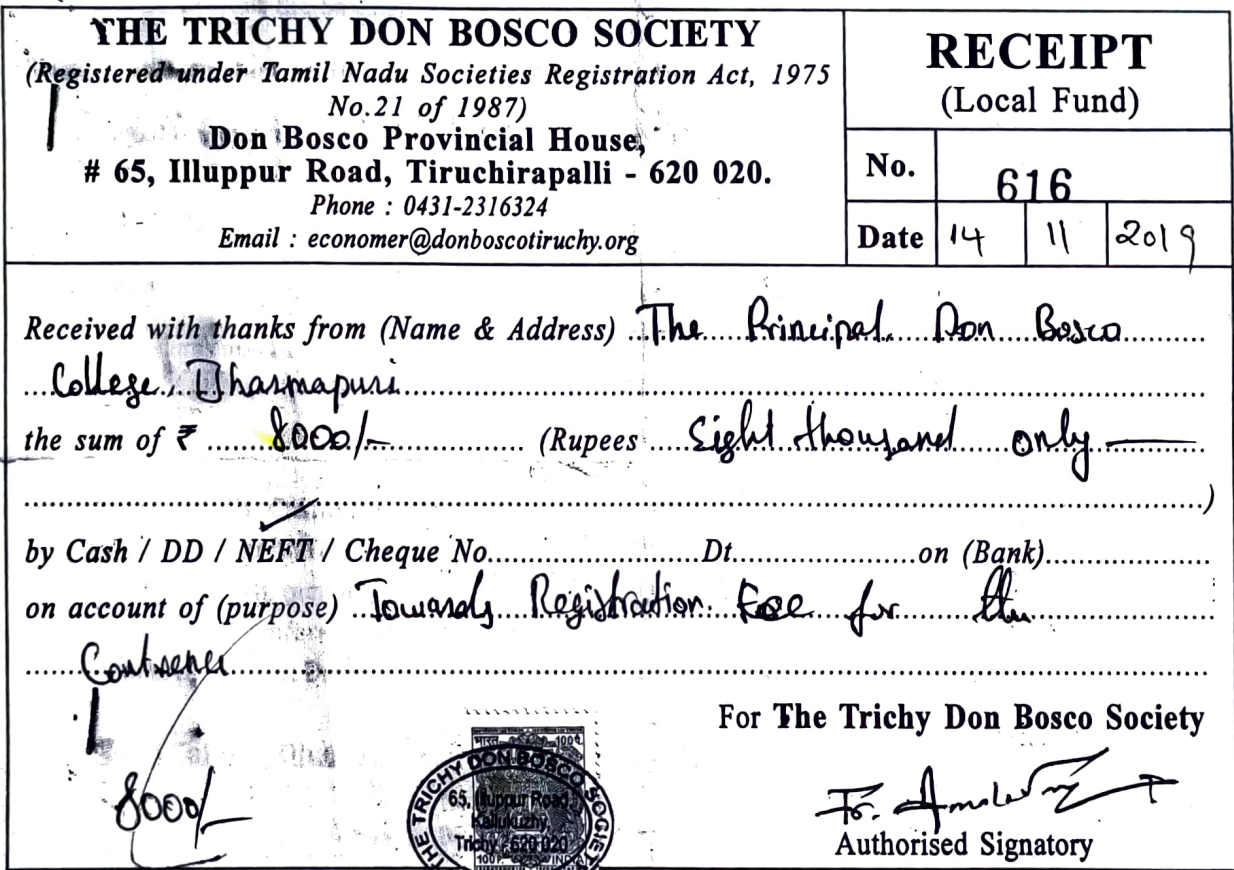 THE TRICHY DON BOSCO SOCIETY
(Registered under Tamil Nadu Societies Registration Act, 1975
No.21 of 1987)
Don Bosco Provincial House,
# 65, Illuppur Road, Tiruchirapalli - 620 020.
Phone : 0431-2316324
Email : economer@donboscotiruchy.org
RECEIPT
(Local Fund)
No. 616
Date 14 11 2019
Received with thanks from (Name & Address) The Principal. Don Bosco
College, Dharmapuri
the sum of ₹ 8000/- (Rupees Eight thousand only
)
by Cash / DD / NEFT / Cheque No. Dt. on (Bank)
on account of (purpose) Towards Registration Fee for the
For The Trichy Don Bosco Society
8000/-
भारत 100
THE TRICHY DON BOSCO SOCIETY
65, Illuppur Road,
Kallukuzhy,
Trichy - 620 020
100 P. INDIA
Fr.
Authorised Signatory